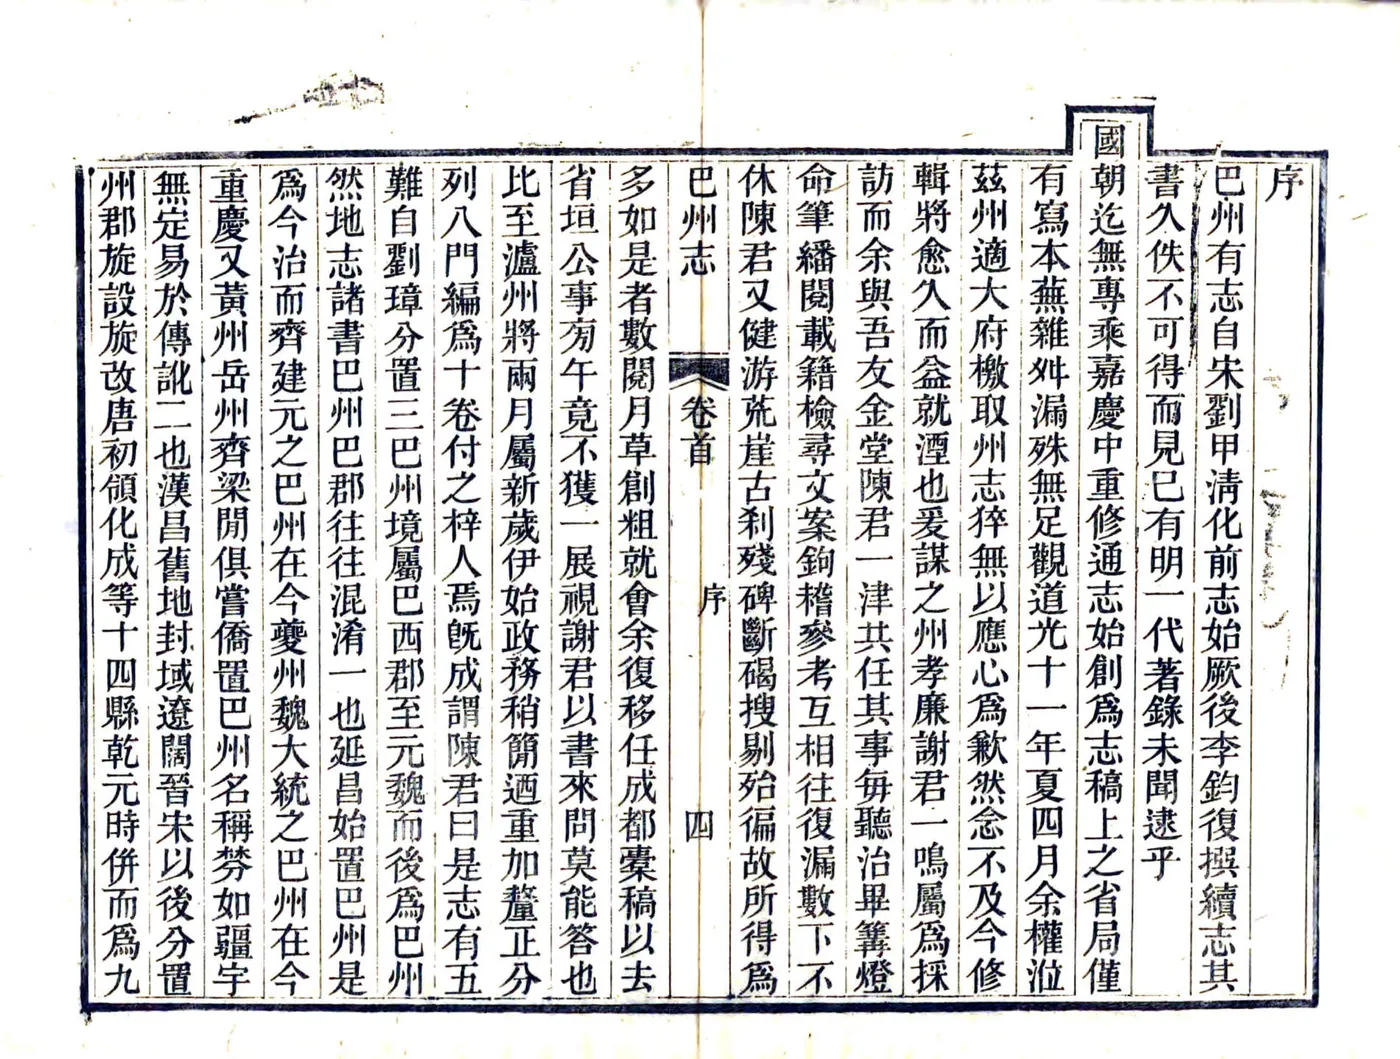 序
巴州有志自宋劉甲淸化前志始厥後李鈞復撰續志其
書久佚不可得而見已有明一代著錄未聞逮乎
國朝迄無專乘嘉慶中重修通志始創爲志稿上之省局僅
有寫本蕪雜舛漏殊無足觀道光十一年夏四月余權涖
茲州適大府檄取州志猝無以應心爲歉然念不及今修
輯將愈久而益就湮也爰謀之州孝廉謝君一鳴屬爲採
訪而余與吾友金堂陳君一津共任其事每聽治畢篝燈
命筆繙閱載籍檢尋文案鉤稽參考互相往復漏數下不
休陳君又健游荒崖古刹殘碑斷碣搜剔殆徧故所得爲
巴州志 卷首 序 四
多如是者數閱月草創粗就會余復移任成都橐稿以去
省垣公事旁午竟不獲一展視謝君以書來問莫能答也
比至瀘州將兩月屬新歲伊始政務稍簡迺重加釐正分
列八門編爲十卷付之梓人焉旣成謂陳君曰是志有五
難自劉璋分置三巴州境屬巴西郡至元魏而後爲巴州
然地志諸書巴州巴郡往往混淆一也延昌始置巴州是
爲今治而齊建元之巴州在今夔州魏大統之巴州在今
重慶又黃州岳州齊梁閒俱嘗僑置巴州名稱棼如疆宇
無定易於傳訛二也漢昌舊地封域遼闊晉宋以後分置
州郡旋設旋改唐初領化成等十四縣乾元時併而爲九